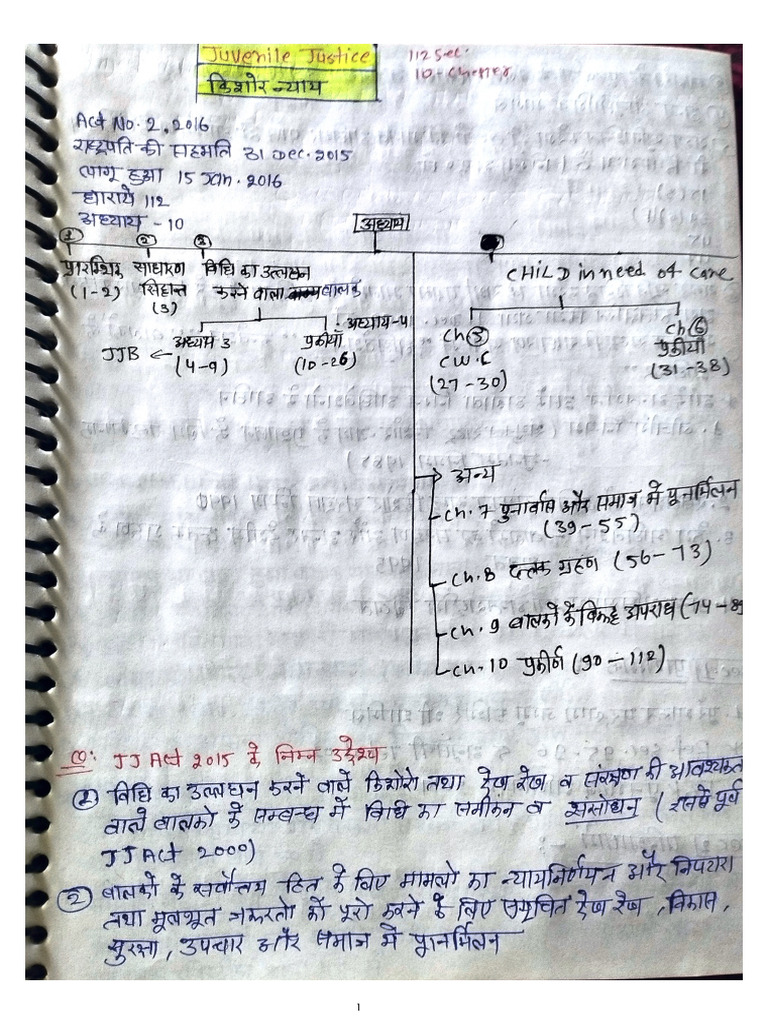 Juvenile Justice
112 Sec.
किशोर न्याय
10 - Chapter
Act No. 2, 2016
राष्ट्रपति की सहमति 31 Dec. 2015
लागू हुआ 15 Jan. 2016
धारायें 112
अध्याय - 10
अध्याय
1 2 3
प्रारम्भिक (1-2)
साधारण सिद्धान्त (3)
विधि का उल्लंघन करने वाला बालक
JJB ← अध्याय 3 (4-9)
अध्याय-4 प्रक्रीया (10-26)
CHILD in need of care
Ch 5 C.W.C (27-30)
Ch 6 प्रक्रीया (31-38)
अन्य
Ch. 7 पुनर्वास और समाज में पुनर्मिलन
(39-55)
Ch. 8 दत्तक ग्रहण (56-73)
Ch. 9 बालकों के विरुद्ध अपराध (74-89
Ch-10 प्रकीर्ण (90-112)
Q: JJ Act 2015 के निम्न उद्देश्य
① विधि का उल्लंघन करने वाले किशोरो तथा देख रेख व संरक्षण की आवश्यकता
वाले बालको के सम्बन्ध में विधि का समेकन व संसोधन (इससे पूर्व
JJ Act 2000)
② बालकों के सर्वोत्तम हित के लिए मामलो का न्यायनिर्णयन और निपटारा
तथा मूलभूत जरूरतो को पूरा करने के लिए समुचित देख रेख, विकास,
सुरक्षा, उपचार और समाज में पुनर्मिलन
1